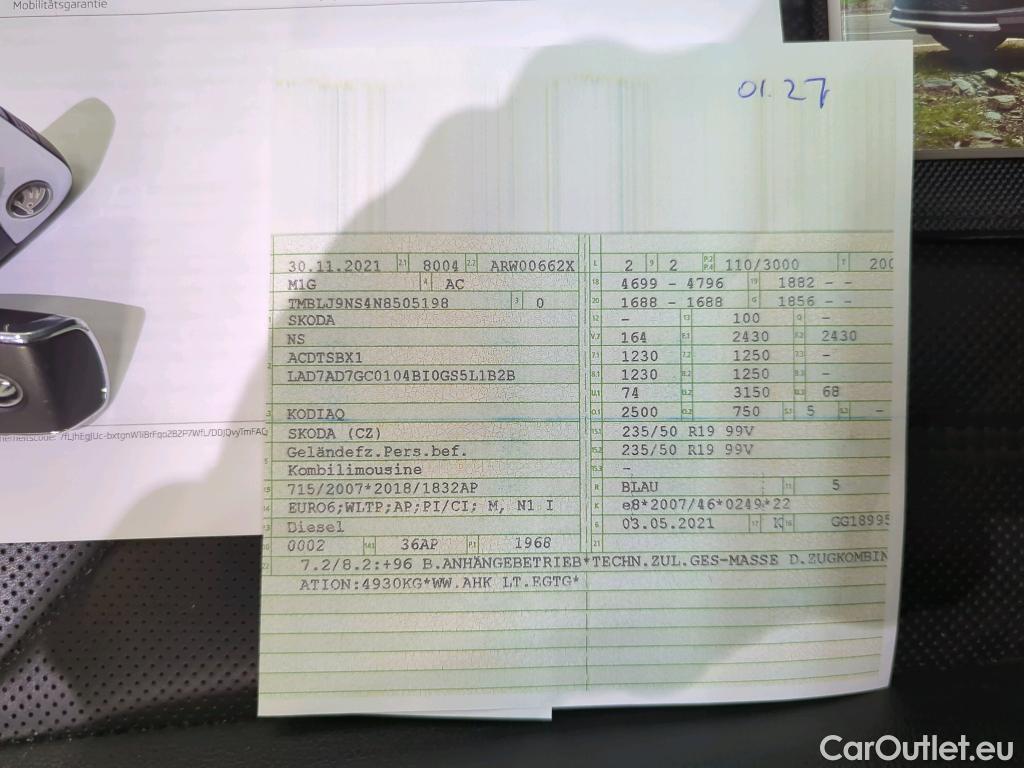 Mobilitätsgarantie
01.27
30.11.2021 2.1 8004 2.2 ARW00662X
M1G 4 AC
TMBLJ9NS4N8505198 3 0
SKODA
NS
ACDTSBX1
LAD7AD7GC0104BI0GS5L1B2B
KODIAQ
SKODA (CZ)
Geländefz.Pers.bef.
Kombilimousine
715/2007*2018/1832AP
EURO6;WLTP;AP;PI/CI; M, N1 I
Diesel
0002 14.1 36AP P.1 1968
L 2 9 2 P.2 P.4 110/3000 T 200
18 4699 - 4796 19 1882 - -
20 1688 - 1688 G 1856 - -
12 - 13 100 Q -
V.7 164 F.1 2430 F.2 2430
7.1 1230 7.2 1250 7.3 -
8.1 1230 8.2 1250 8.3 -
U.1 74 U.2 3150 U.3 68
O.1 2500 O.2 750 S.1 5 S.2 -
15.1 235/50 R19 99V
15.2 235/50 R19 99V
15.3 -
R BLAU 11 5
K e8*2007/46*0249*22
6 03.05.2021 17 K 16 GG18995
21
22 7.2/8.2:+96 B.ANHÄNGEBETRIEB*TECHN.ZUL.GES-MASSE D.ZUGKOMBIN
ATION:4930KG*WW.AHK LT.EGTG*
CarOutlet.eu